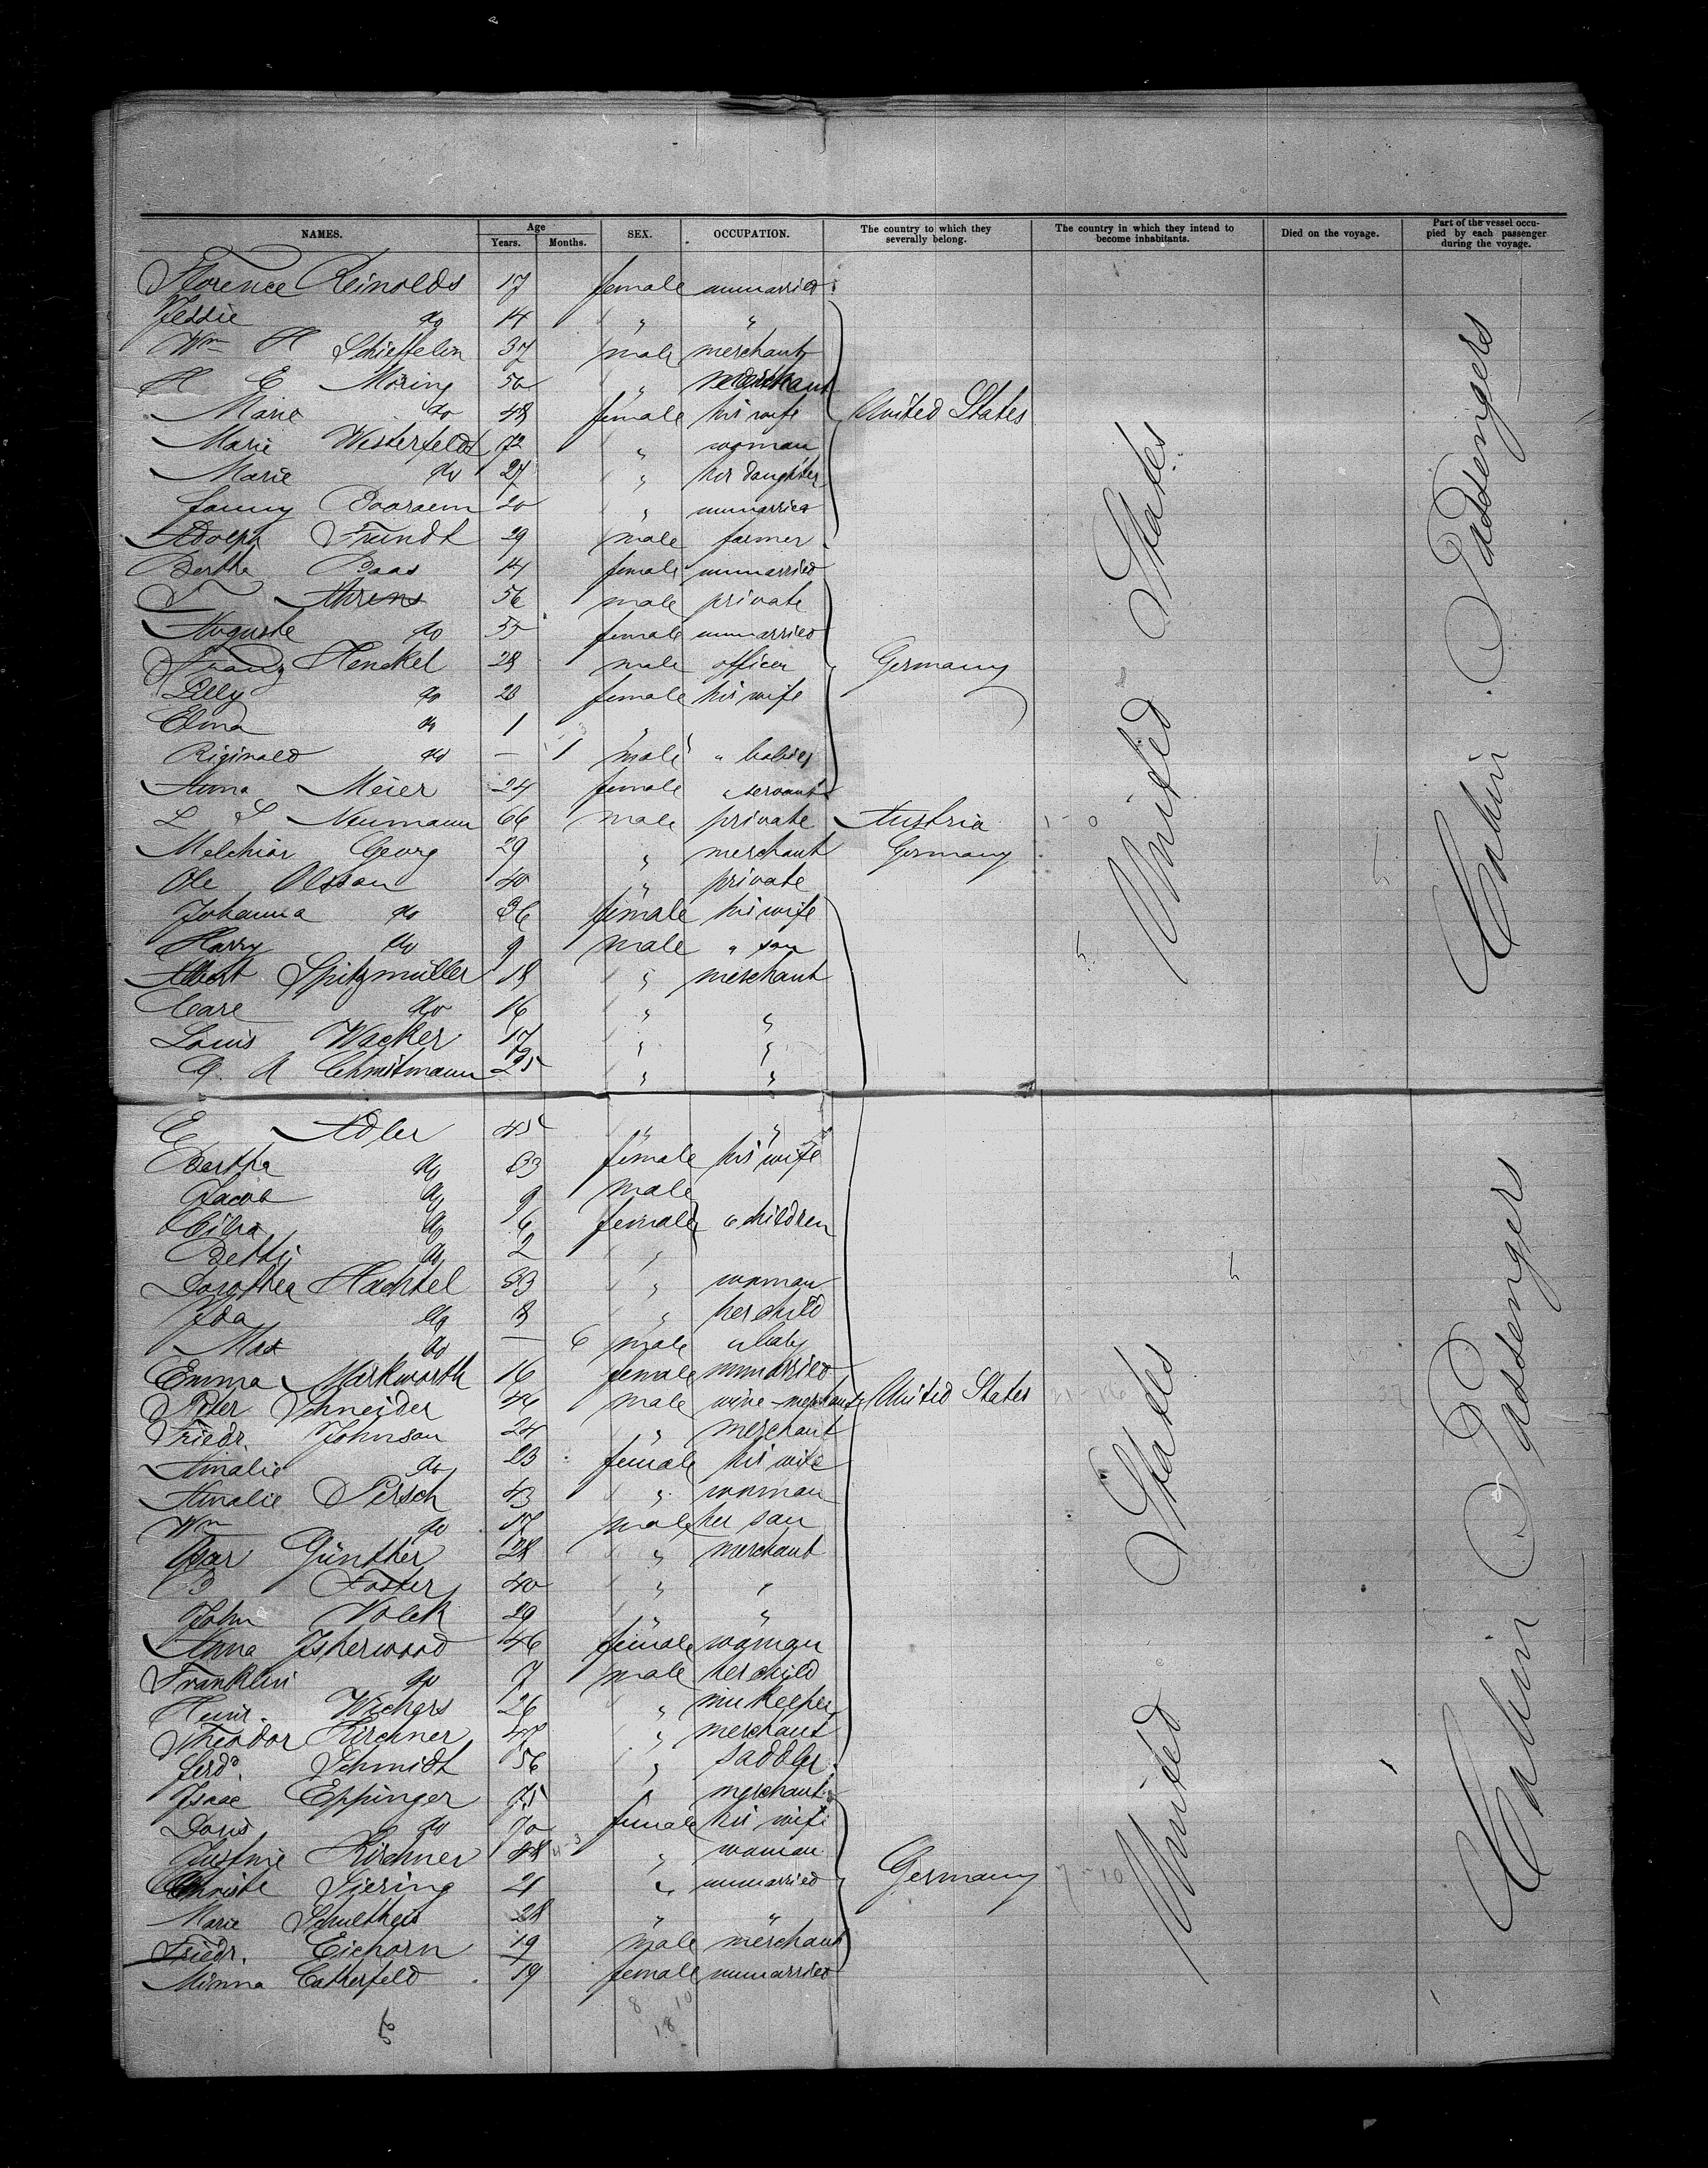 NAMES. Age Years. Months. SEX. OCCUPATION. The country to which they severally belong. The country in which they intend to become inhabitants. Died on the voyage. Part of the vessel occupied by each passenger during the voyage.
Florence Reinolds 17 female unmarried
Jessie do 14 " "
Wm H Schieffelin 37 male merchant
H E Möring 50 " merchant
Marie do 48 female his wife United States
Marie Westerfeldt 72 " woman
Marie do 27 " her daughter
Fanny 20 " unmarried
Adolph Frundt 29 male farmer
Bertha Baas 14 female unmarried
T Ahrens 56 male private
Auguste do 55 female unmarried
Franz Henckel 28 male officer Germany
Lilly do 20 female his wife
Elma do 1 "
Riginald do — 1 male " babies
Anna Meier 24 female " servant
L S Neumann 66 male private Austria
Melchior Georg 29 " merchant Germany
Ole Olsson 40 " private
Johanna do 36 female his wife
Harry do 9 male " son
Albert Spitzmüller 18 " merchant
Carl do 16 " "
Louis Wacker 17 " "
A " "
United States
Cabin Passengers
E Adler 45 " "
Bertha do 33 female his wife
Jacob do 9 male
do 6 female " children
Betty do 2 "
Dorothea Hachtel 33 " woman
Ida do 3 " her child
Max do — 6 male " baby
Emma Markworth 16 female unmarried
Peter Schneider 46 male wine-merchant United States
Friedr. Johnson 24 " merchant
Amalie do 23 female his wife
Amalie Persch 43 " woman
Wm do 17 male her son
Günther 28 " merchant
B Foster 40 " "
John Volck 29 " "
Anna Isherwood 46 female woman
Franklin do 7 male her child
Heinr. Wichers 26 " innkeeper
Theodor Kirchner 47 " merchant
Ferdd. Schmidt 56 " saddler
Isaac Eppinger 75 " merchant
Doris do 70 female his wife
Justine Kirchner 48 " woman
Christe 21 " unmarried Germany
Marie Schultheis 28 " "
Friedr. Eichorn 19 male merchant
Minna Catherfeld 19 female unmarried
United States
Cabin Passengers
8 10
18